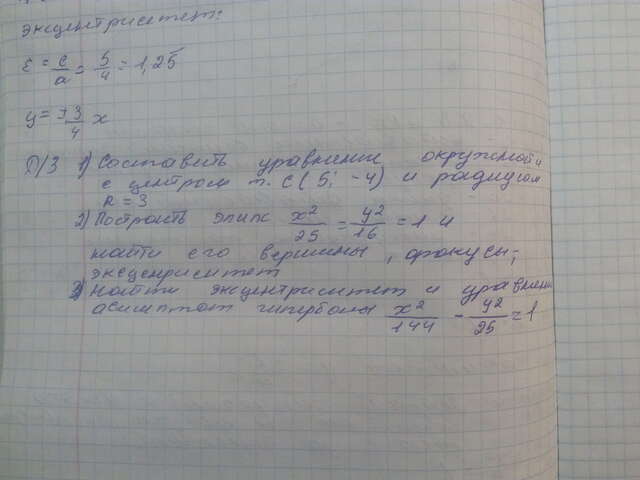 эксцентриситет:
ε = c/a = 5/4 = 1,25
y = ±3/4 x
Д/З 1) Составить уравнение окружност и
с центром т. С ( 5; -4) и радиусом
R = 3
2) Построить элипс x²/25 = y²/16 = 1 и
найти его вершины, фокусы;
эксценриситет
3) Найти эксцентриситет и уравнени
асимптот гиперболы x²/144 - y²/25 = 1